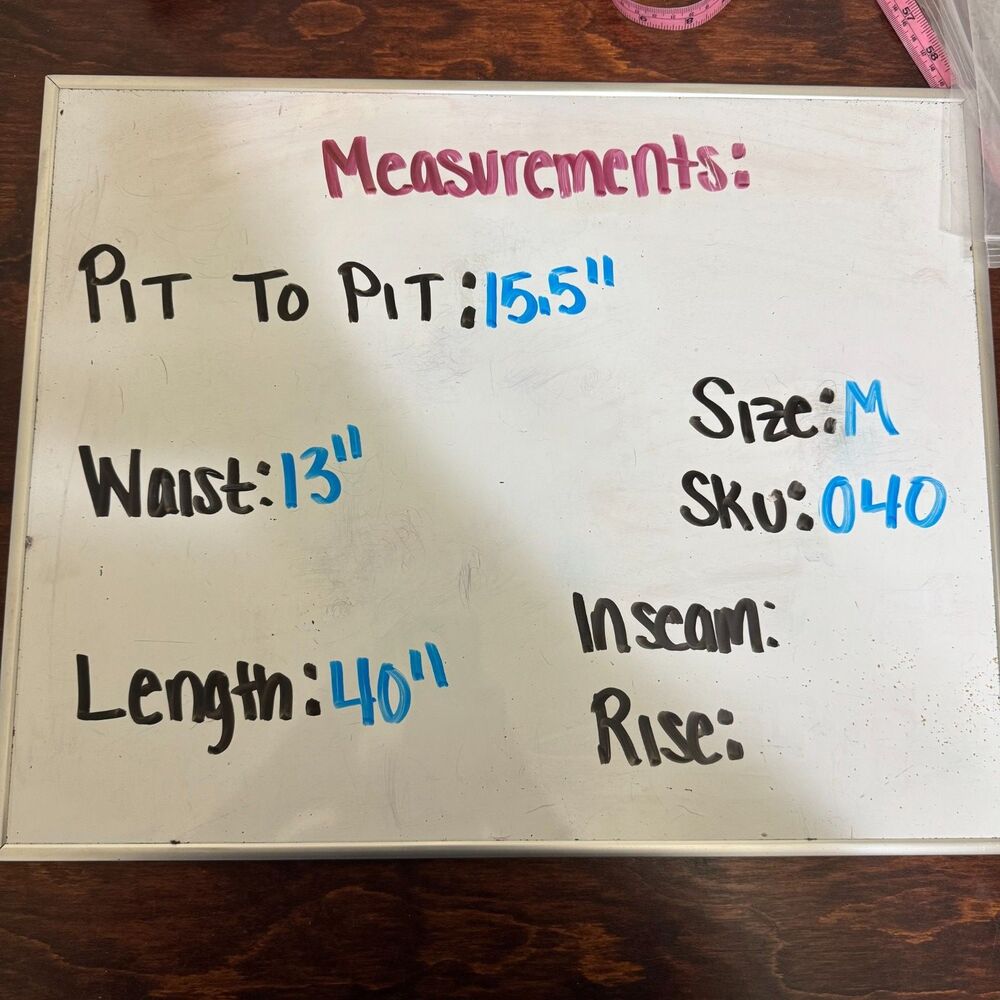 Measurements:
PIT TO PIT: 15.5"
Waist: 13"
Length: 40"
Size: M
SKU: 040
Inseam:
Rise:
57
58